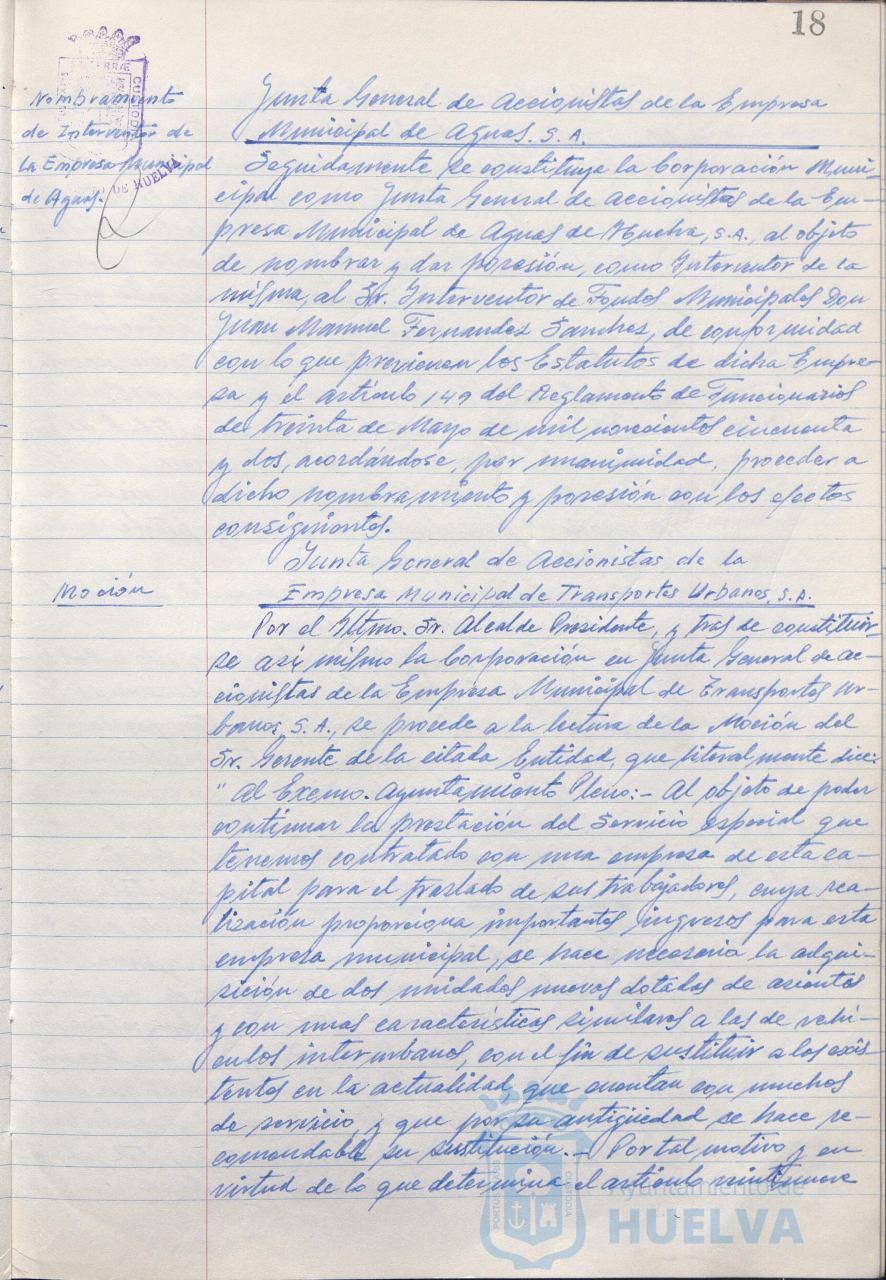 18
Nombramiento
de Interventor de
la Empresa Municipal
de Aguas.
Junta General de Accionistas de la Empresa
Municipal de Aguas. S.A.
Seguidamente se constituye la Corporación Muni-
cipal como Junta General de accionistas de la Em-
presa Municipal de Aguas de Huelva, S.A., al objeto
de nombrar y dar posesión, como Interventor de la
misma, al Sr. Interventor de Fondos Municipales Don
Juan Manuel Fernandez Sanchez, de conformidad
con lo que previenen los Estatutos de dicha Empre-
sa y el artículo 149 del Reglamento de Funcionarios
de treinta de Mayo de mil novecientos cincuenta
y dos, acordándose, por unanimidad, proceder a
dicho nombramiento y posesión con los efectos
consiguientes.
Junta General de Accionistas de la
Moción
Empresa Municipal de Transportes Urbanos, S.A.
Por el Iltmo. Sr. Alcalde Presidente, y tras de constituir-
se asi mismo la Corporación en Junta General de ac-
cionistas de la Empresa Municipal de Transportes Ur-
banos, S.A., se procede a la lectura de la Moción del
Sr. Gerente de la citada Entidad, que literalmente dice:
"Al Excmo. Ayuntamiento Pleno:- Al objeto de poder
continuar la prestación del Servicio especial que
tenemos contratado con una empresa de esta ca-
pital para el traslado de sus trabajadores, cuya rea-
lización proporciona importantes ingresos para esta
empresa municipal, se hace necesaria la adqui-
sición de dos unidades nuevas dotadas de asientos
y con unas características similares a las de vehí-
culos interurbanos, con el fin de sustituir a los exis
tentes en la actualidad, que cuentan con muchos
de servicio, y que por su antigüedad se hace re-
comendable su sustitución.- Por tal motivo y en
virtud de lo que determina el artículo veintinueve
PORTUS
CUSTODIA
Ayuntamiento de
HUELVA